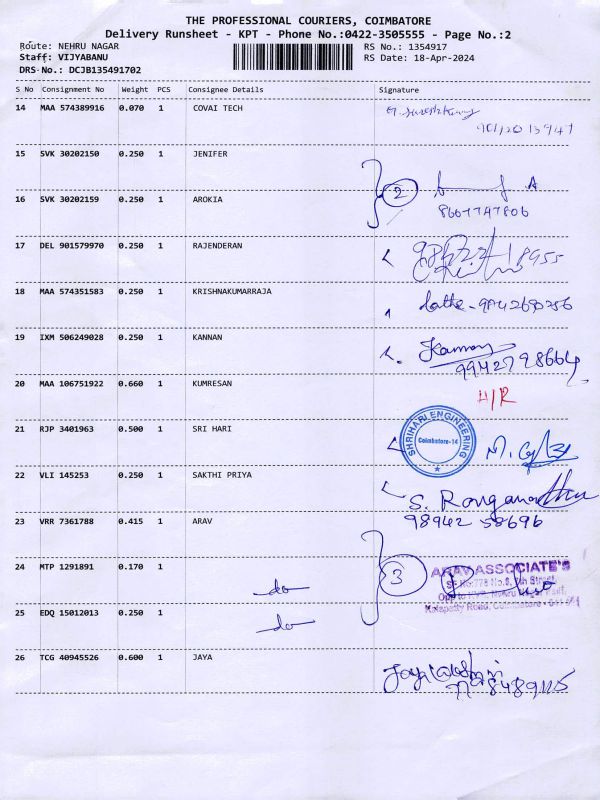 THE PROFESSIONAL COURIERS, COIMBATORE
Delivery Runsheet - KPT - Phone No.:0422-3505555 - Page No.:2
Route: NEHRU NAGAR RS No.: 1354917
Staff: VIJYABANU RS Date: 18-Apr-2024
DRS No.: DCJB135491702
S No Consignment No Weight PCS Consignee Details Signature
14 MAA 574389916 0.070 1 COVAI TECH
15 SVK 30202150 0.250 1 JENIFER
2
16 SVK 30202159 0.250 1 AROKIA
8667747806
17 DEL 901579970 0.250 1 RAJENDERAN
18 MAA 574351583 0.250 1 KRISHNAKUMARRAJA
19 IXM 506249028 0.250 1 KANNAN Kannan
9942798664
20 MAA 106751922 0.660 1 KUMRESAN
21 RJP 3401963 0.500 1 SRI HARI SHRIHARI ENGINEERING
Coimbatore-14
22 VLI 145253 0.250 1 SAKTHI PRIYA
S. Ranganathan
23 VRR 7361788 0.415 1 ARAV 98942 58696
24 MTP 1291891 0.170 1 do 3 ARAV ASSOCIATE'S
25 EDQ 15012013 0.250 1 do
26 TCG 40945526 0.600 1 JAYA